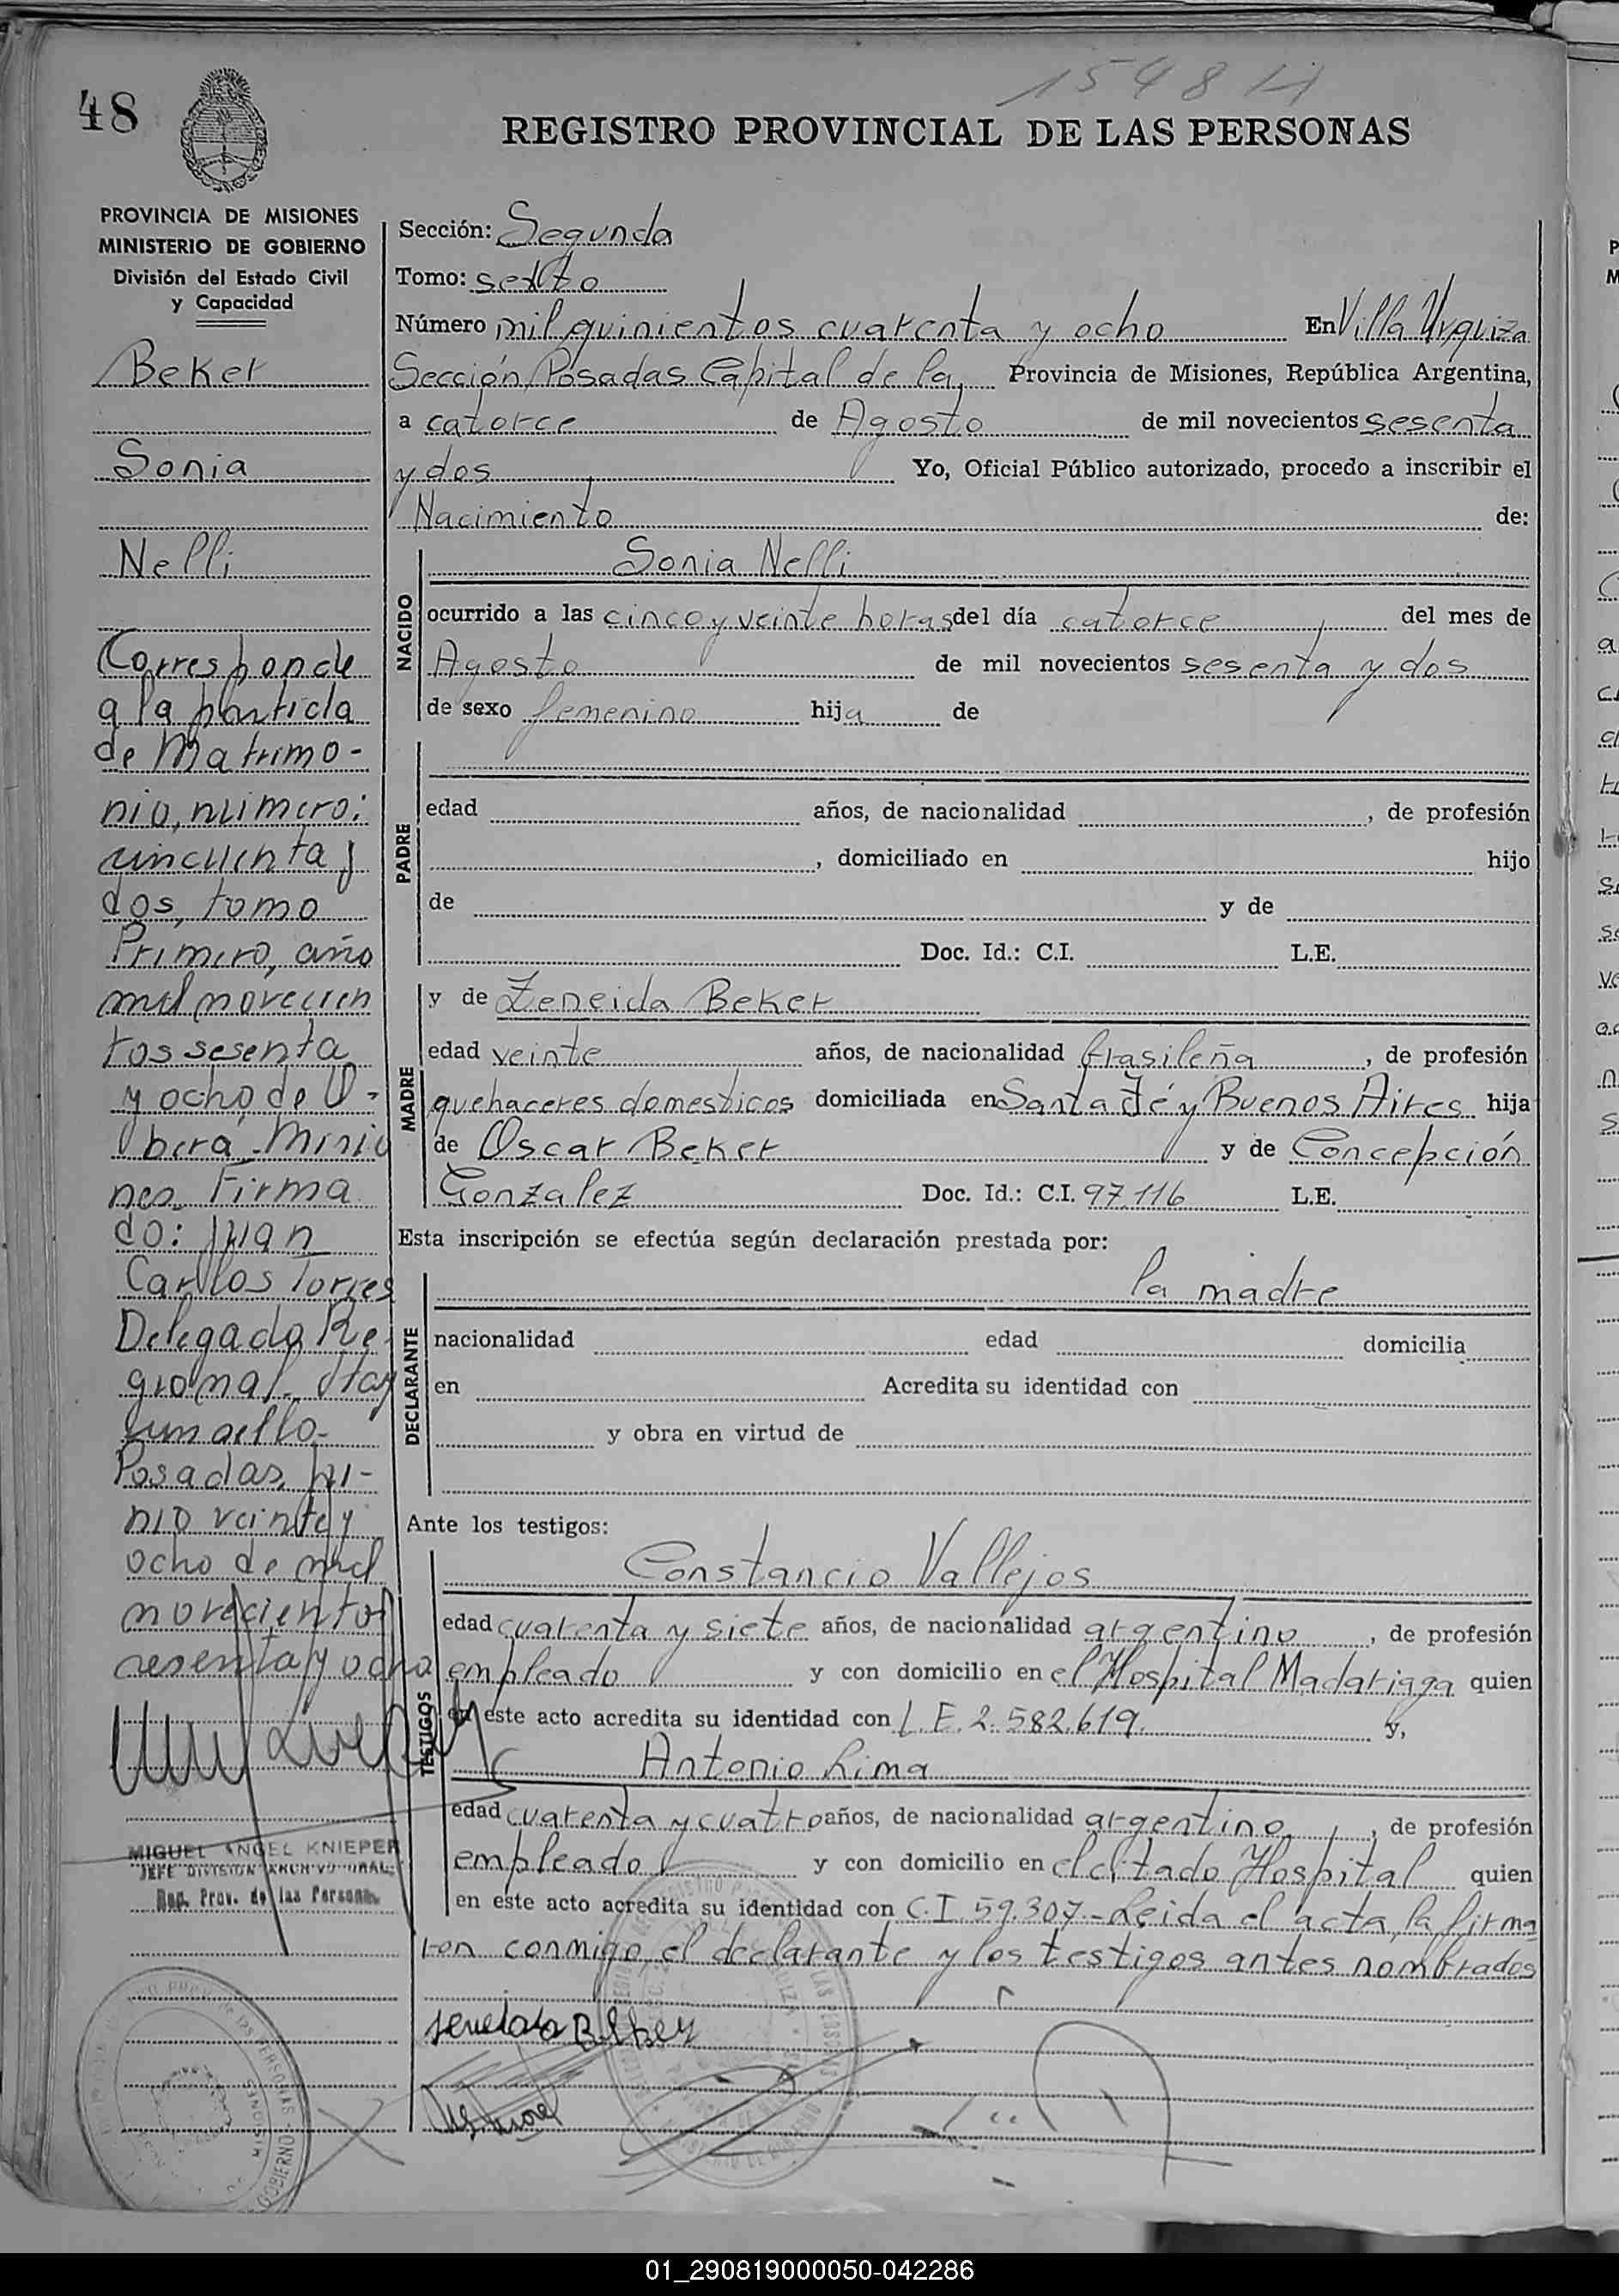 1548 H
48
REGISTRO PROVINCIAL DE LAS PERSONAS
PROVINCIA DE MISIONES
MINISTERIO DE GOBIERNO
División del Estado Civil
y Capacidad
Beker
Sonia
Nelli
Corresponde
a la partida
de Matrimo-
nio, número:
cincuenta y
dos, tomo
Primero, año
mil novecien
tos sesenta
y ocho de O-
berá Misio
nes Firma
do: Juan
Carlos Torres
Delegado Re
gional. Hay
un sello-
Posadas, ju-
nio veinte y
ocho de mil
novecientos
sesenta y ocho
MIGUEL ANGEL KNIEPER
JEFE DIVISION ARCHIVO GRAL.
Reg. Prov. de las Personas
Sección: Segunda
Tomo: sexto
Número mil quinientos cuarenta y ocho En Villa Urquiza
Sección Posadas Capital de la Provincia de Misiones, República Argentina,
a catorce de Agosto de mil novecientos sesenta
y dos Yo, Oficial Público autorizado, procedo a inscribir el
Nacimiento de:
NACIDO
Sonia Nelli
ocurrido a las cinco y veinte horas del día catorce del mes de
Agosto de mil novecientos sesenta y dos
de sexo femenino hija de
PADRE
edad años, de nacionalidad , de profesión
, domiciliado en hijo
de y de
Doc. Id.: C.I. L.E.
MADRE
y de Zeneida Beker
edad veinte años, de nacionalidad brasileña , de profesión
quehaceres domesticos domiciliada en Santa Fé y Buenos Aires hija
de Oscar Beker y de Concepción
Gonzalez Doc. Id.: C.I. 97.116 L.E.
Esta inscripción se efectúa según declaración prestada por:
DECLARANTE
la madre
nacionalidad edad domicilia
en Acredita su identidad con
y obra en virtud de
Ante los testigos:
TESTIGOS
Constancio Vallejos
edad cuarenta y siete años, de nacionalidad argentino , de profesión
empleado y con domicilio en el Hospital Madariaga quien
en este acto acredita su identidad con L.E. 2.582.619. y,
Antonio Lima
edad cuarenta y cuatro años, de nacionalidad argentino , de profesión
empleado y con domicilio en el citado Hospital quien
en este acto acredita su identidad con C.I. 59.307.- Leida el acta, la firma
ron conmigo el declarante y los testigos antes nombrados
01_290819000050-042286